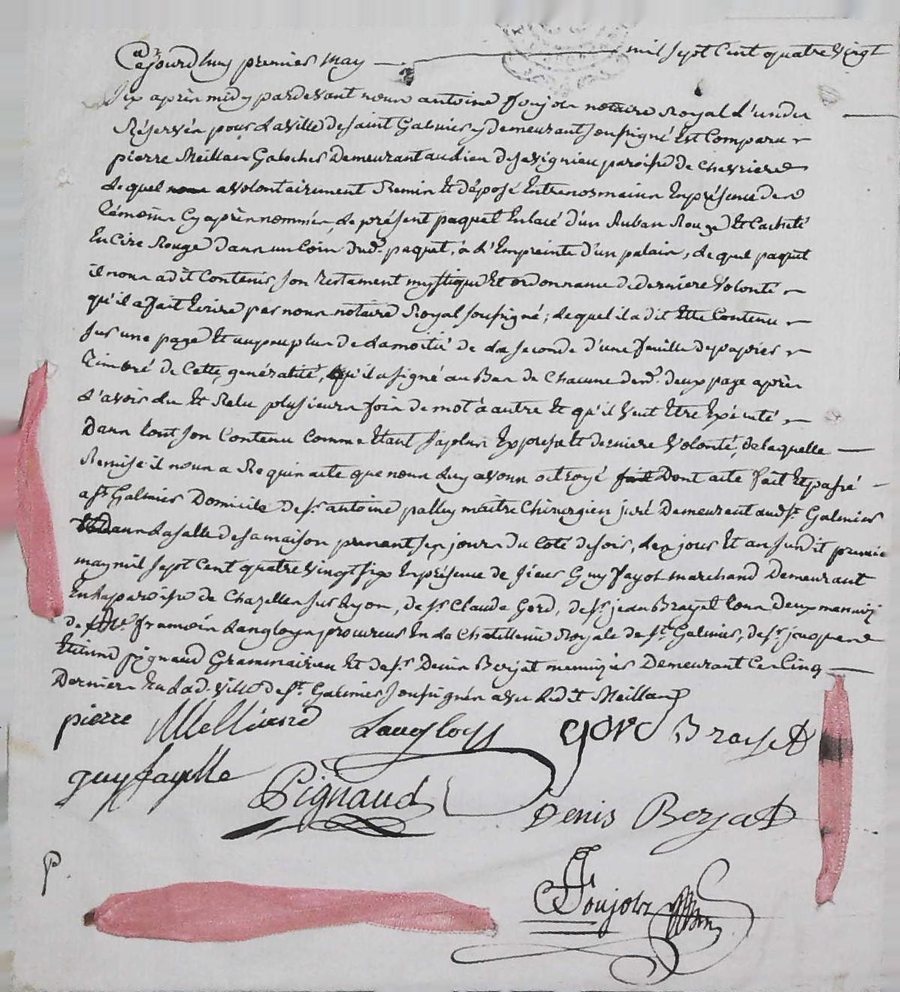 aujourd'huy premier may mil sept Cent quatre vingt
six après midy pardevant nous antoine Foujols notaire Royal l'un des
Réservés pour la ville de saint Galmier y demeurant soussigné Est Comparu
pierre Meilland Galocher Demeurant au lieu de Savignieu paroisse de Chevrieres
Lequel a volontairement Remis Et déposé Entre nos mains En présence des
témoins Cy après nommés, le présent paquet Enlacé d'un Ruban Rouge Et Cacheté
En Cire Rouge dans un Coin dud. paquet, à L'Empreinte d'un , Lequel paquet
il nous a dit Contenir son testament mystique Et ordonnance de derniere volonté
qu'il a fait Ecrire par nous notaire Royal soussigné; lequel il a dit Etre Contenu
sur une page Et au plus de la moitié de la seconde d'une feuille de papier
timbré de Cette généralité, qu'il a signé au Bas de Chacune desd. deux page après
L'avoir lu Et Relu plusieurs fois de mot à autre Et qu'il veut Etre Exécuté
Dans tout son Contenu Comme Etant sa Expresse Et derniere volonté, de laquelle
Remise il nous a Requis acte que nous luy avons octroyé Dont acte fait Et passé
a St. Galmier Domicile de sr. antoine palluy maitre Chirurgien juré Demeurant aud. St. Galmier
dans La salle de sa maison prenant ses jours du Coté de soir, les jour Et an susdit premier
may mil sept Cent quatre vingt six En présence de sieur Guy Fayol marchand Demeurant
En la paroisse de Chazelles sur Lyon, de sr. Claude Gord, de sr. jean Brayet tous Deux
de françois Langlois procureur En la Chatellenie Royale de St. Galmier, de sr. jacques
Etienne pignaud Grammairien Et de sr. Denis Berjat menuisier Demeurant Ces Cinq
Derniers En lad. ville de St. Galmier soussignés avec ledit Meilland
pierre Melliand Langlois gord Brayet
guy fayolle Pignaud Denis Berjat
P.
Foujols